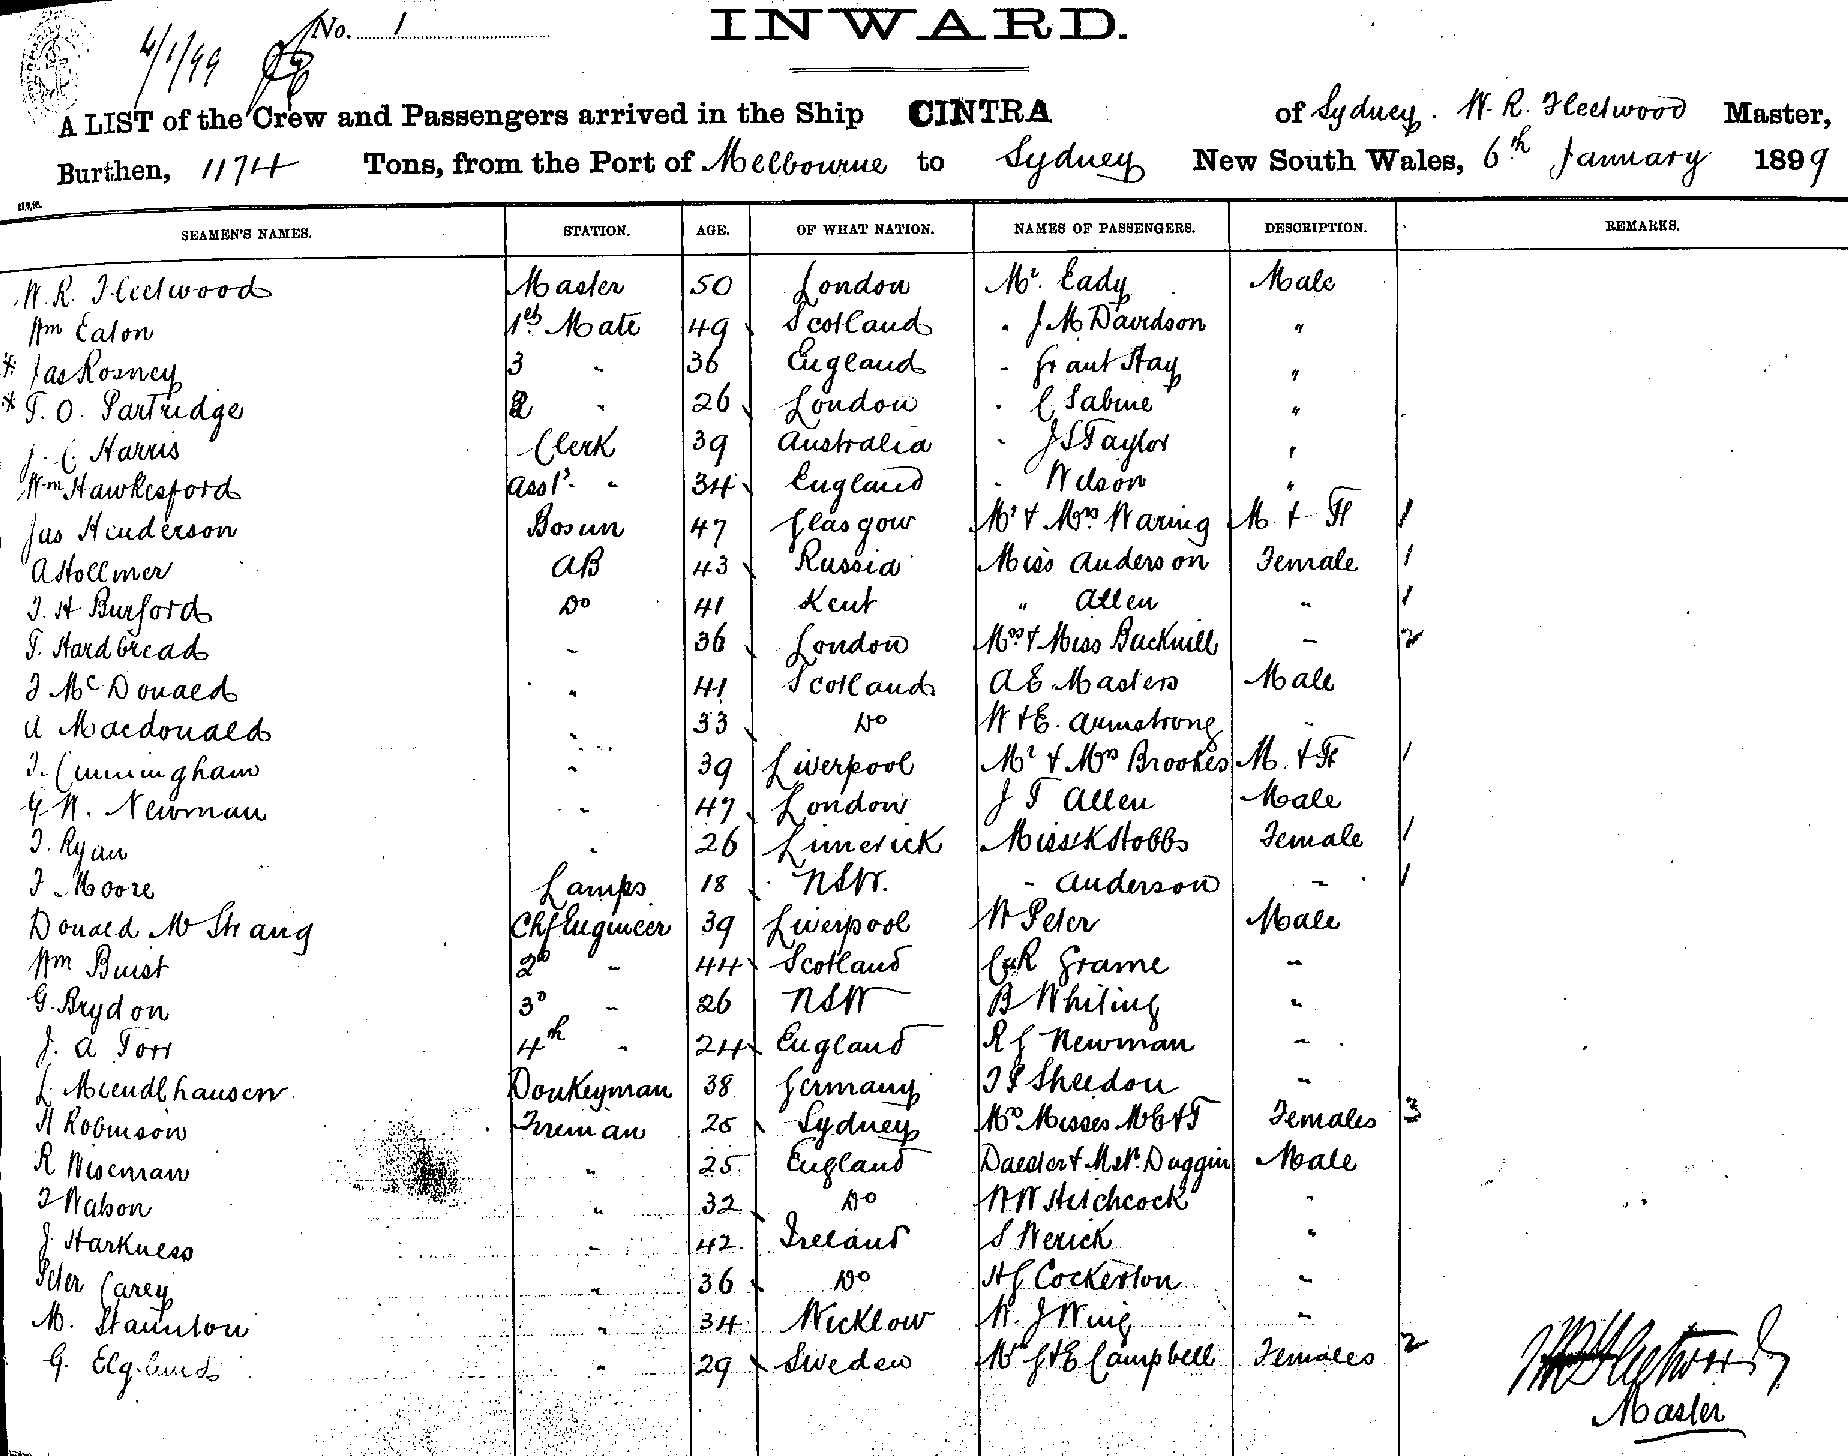 No. 1
INWARD.
4/1/99
A LIST of the Crew and Passengers arrived in the Ship CINTRA of Sydney. W. R. Fleetwood Master,
Burthen, 1174 Tons, from the Port of Melbourne to Sydney New South Wales, 6th January 1899
SEAMEN'S NAMES. STATION. AGE. OF WHAT NATION. NAMES OF PASSENGERS. DESCRIPTION. REMARKS.
W. R. Fleetwood Master 50 London Mr. Eady Male
Wm Eaton 1st Mate 49 Scotland " J M Davidson "
* Jas Rosney 3 " 36 England " Grant Hay "
* T. O. Partridge 2 " 26 London " C Sabine "
J. C. Harris Clerk 39 Australia " J S Taylor "
Wm Hawkesford Asst. " 34 England " Wilson "
Jas Henderson Bosun 47 Glasgow Mr & Mrs Waring M & F 1
A Hollmer AB 43 Russia Miss Anderson Female 1
F. H Burford Do 41 Kent " Allen " 1
T. Hardbread " 36 London Mrs & Miss Bucknill " 2
J McDonald " 41 Scotland A E Masters Male
A Macdonald " 33 Do W & E. Armstrong "
J. Cunningham " 39 Liverpool Mr & Mrs Brookes M. & F 1
G W. Newman " 47 London J T Allen Male
J. Ryan " 26 Limerick Miss K Hobbs Female 1
F. Moore Lamps 18 NSW. " Anderson " 1
Donald M Strang Chf Engineer 39 Liverpool W Peter Male
Wm Buist 2d " 44 Scotland C & R Grame "
G. Brydon 3d " 26 NSW B Whiting "
J. A Torr 4th " 24 England R J Newman "
L. Miendlhausen Donkeyman 38 Germany F S Sheldon "
H Robinson Fireman 25 Sydney Mrs Misses M E & T Females 3
R Wiseman " 25 England Duggin Male
J Watson " 32 Do W W Hitchcock "
J. Harkness " 42 Ireland S Werick "
Peter Carey " 36 Do H J Cockerton "
M. Staunton " 34 Wicklow W. J Wing "
G. " 29 Sweden G & E Campbell Females 2
W R Fleetwood
Master